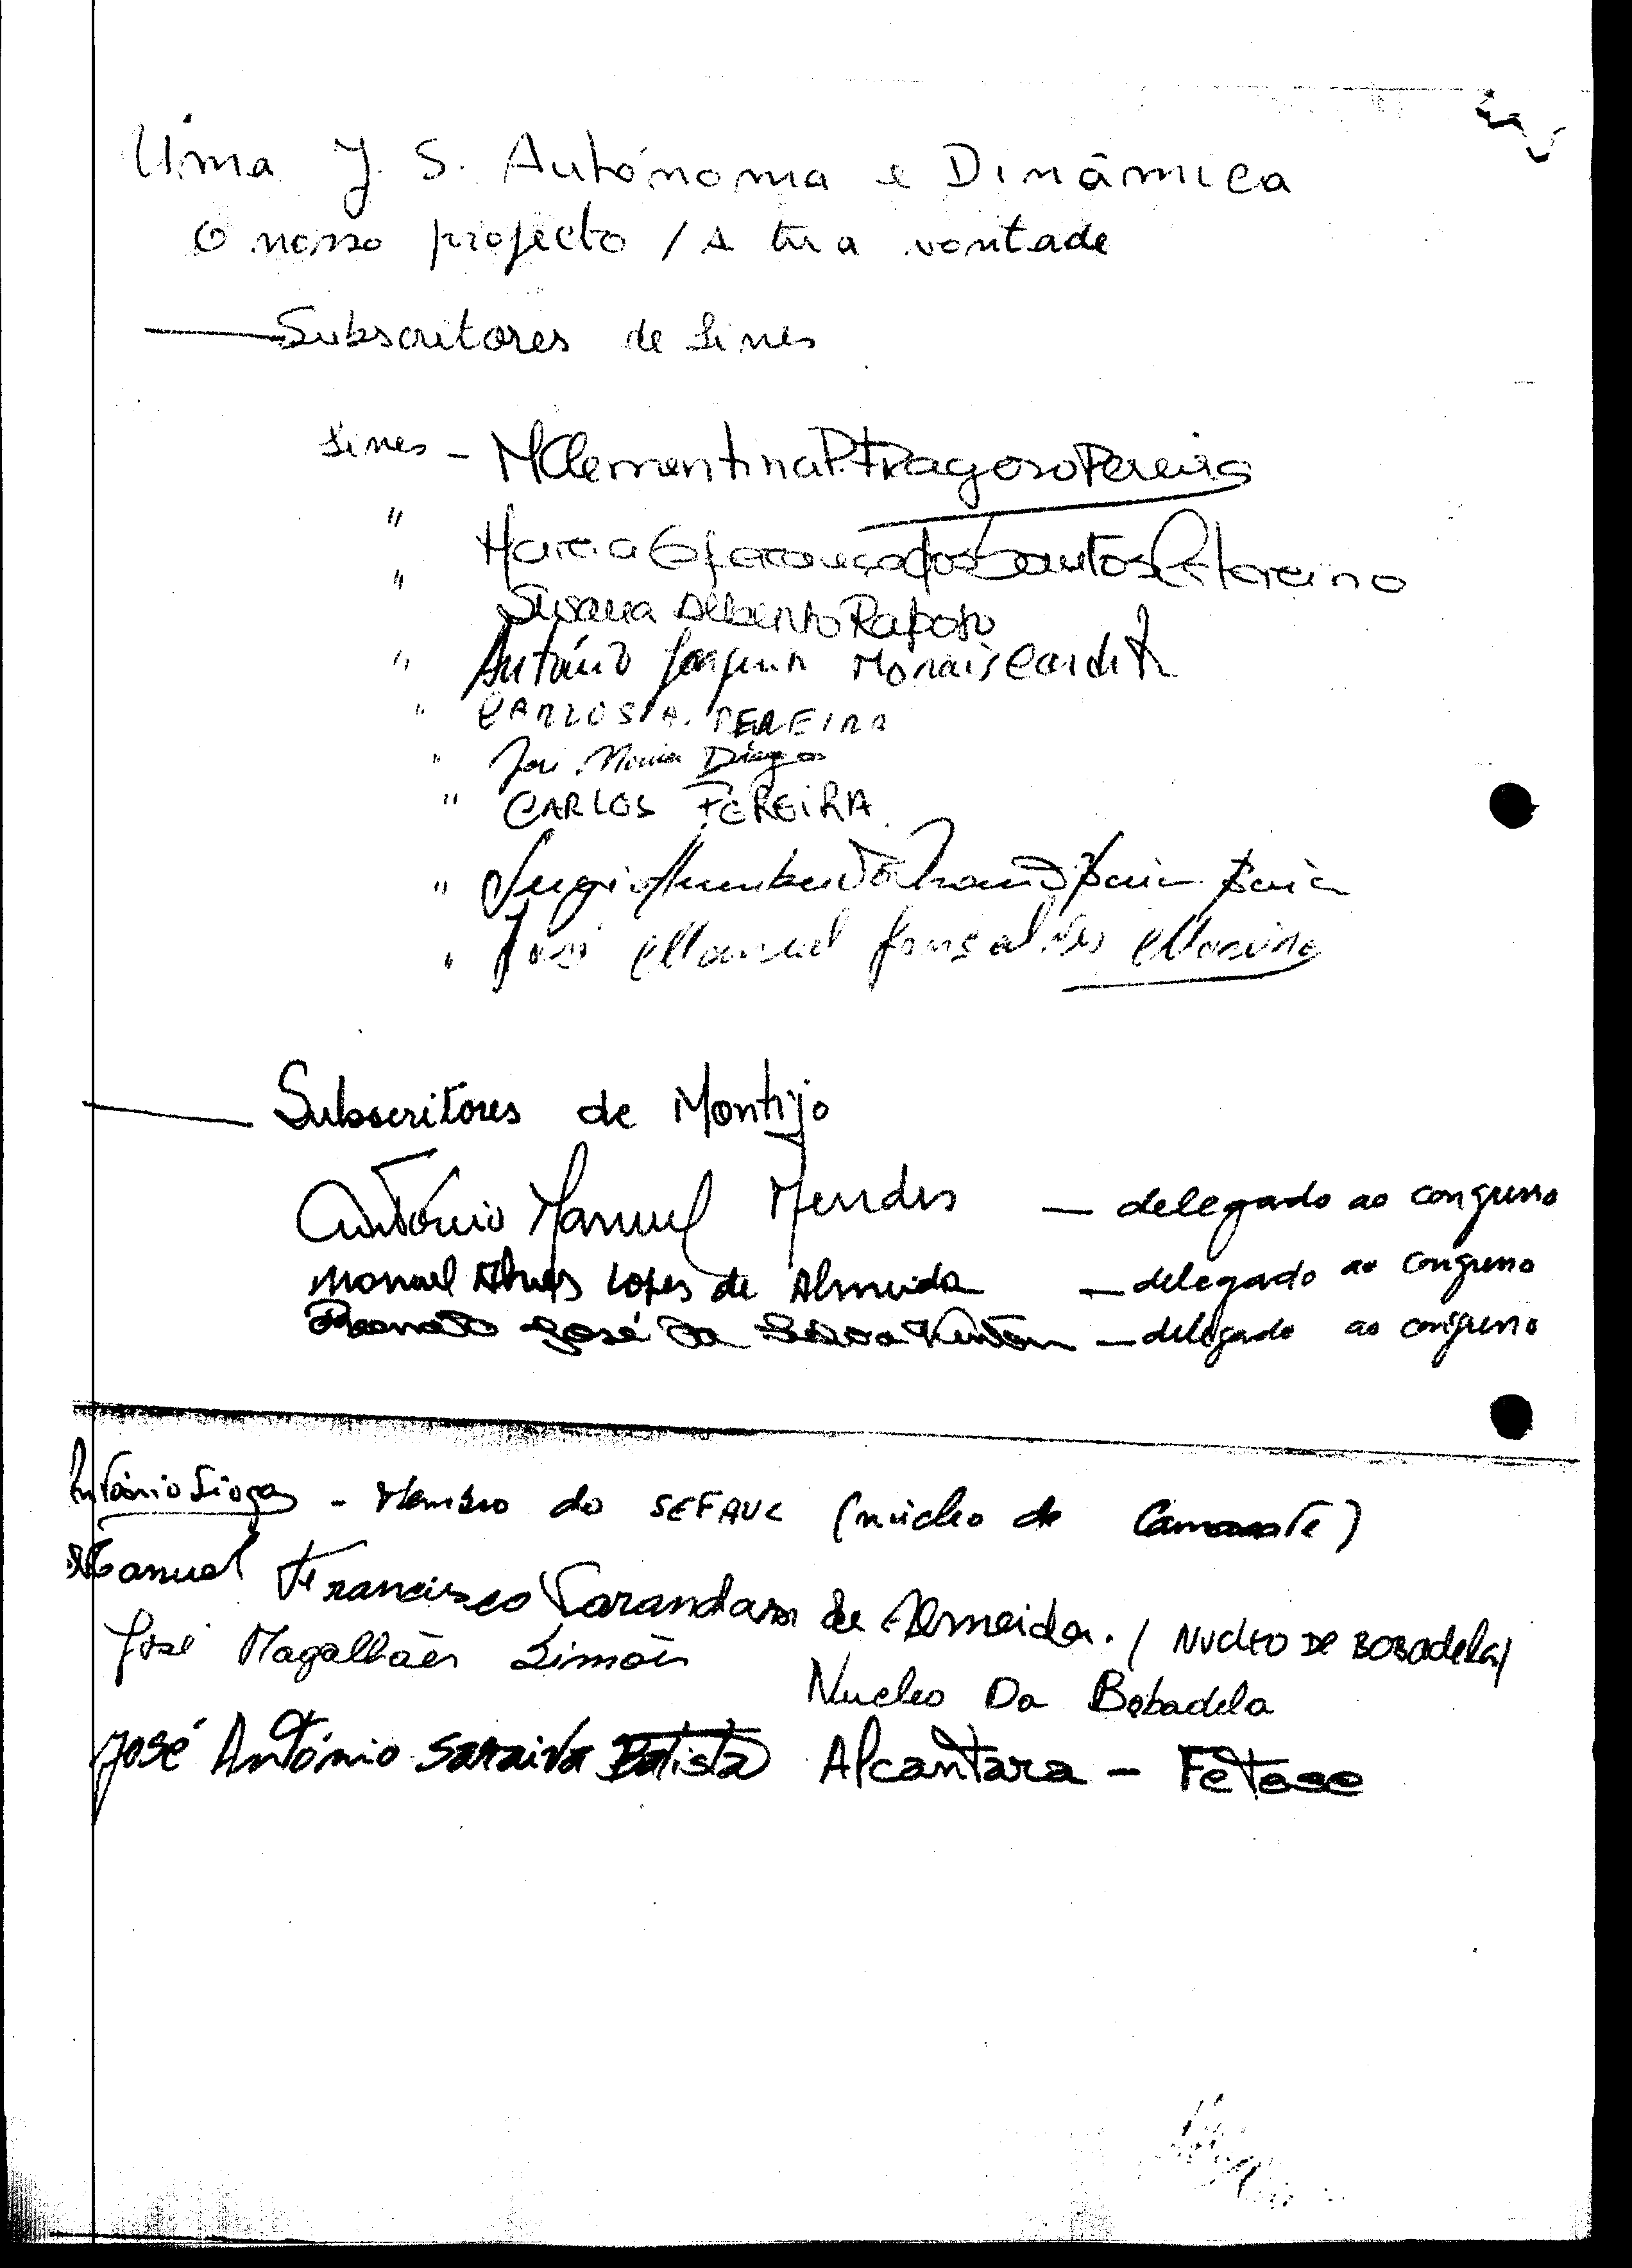 Uma J. S. Autónoma e Dinâmica
O nosso projecto / A tua vontade
Subscritores de Sines
Sines - MClementina P. Fragoso Pereira
" Maria Esperança dos Santos
" Susana Alberto Raposo
" António Joaquim Morais
" CARLOS A. PEREIRA
" José Maria Diogo
" CARLOS PEREIRA
" Sergio Humberto
" José Manuel Gonçalves
Subscritores de Montijo
António Manuel Mendes — delegado ao congresso
Manuel Alves Lopes de Almeida — delegado ao congresso
José da Silva — delegado ao congresso
António - Membro do (núcleo de Camarate)
Manuel Francisco de Almeida. / NUCLEO DE BOBADELA /
José Magalhães Simões Nucleo Da Bobadela
José António Saraiva Batista Alcantara - Fetese